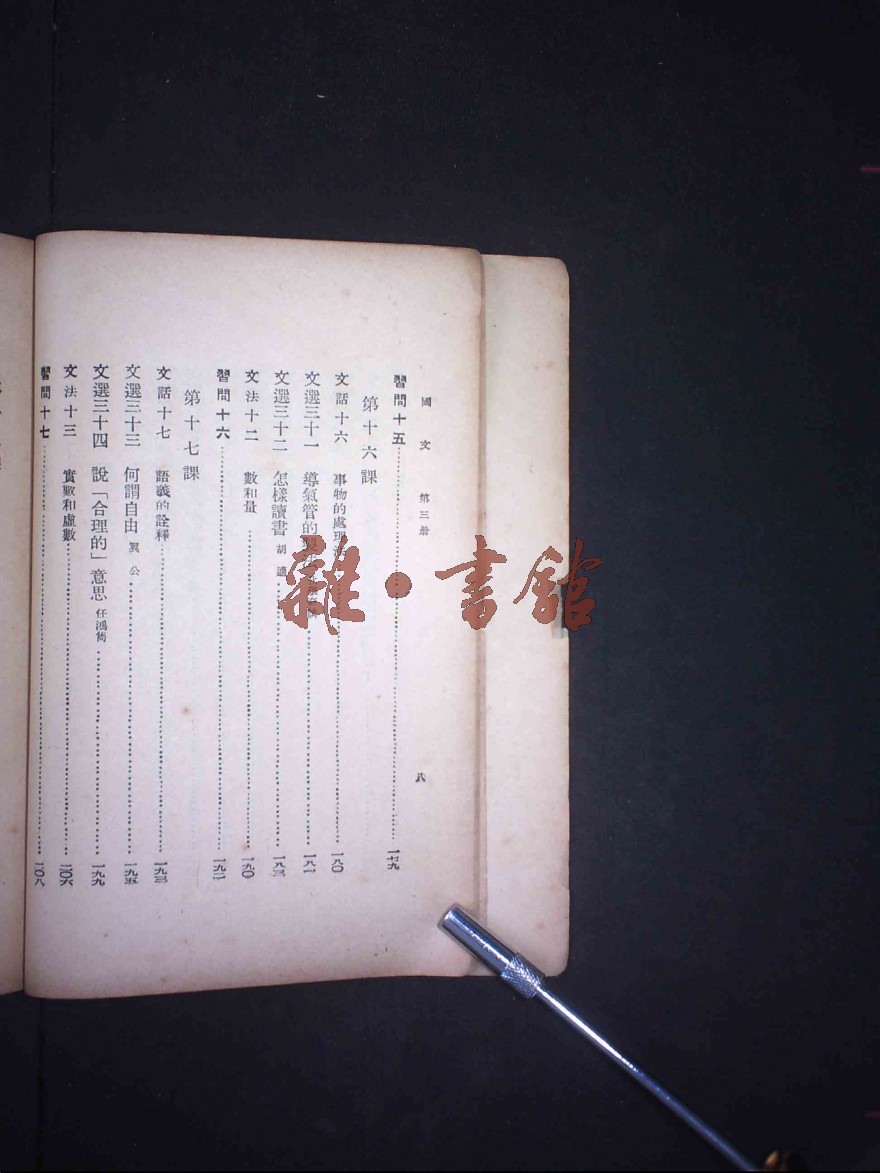 國文 第三冊 八
習問十五 一七九
第十六課
文話十六 事物的處理 一八〇
文選三十一 導氣管的 一八一
文選三十二 怎樣讀書 胡適 一八三
文法十二 數和量 一九〇
習問十六 一九二
第十七課
文話十七 語義的詮釋 一九三
文選三十三 何謂自由 翼公 一九五
文選三十四 說「合理的」意思 任鴻雋 一九九
文法十三 實數和虛數 二〇六
習問十七 二〇八
雜·書館